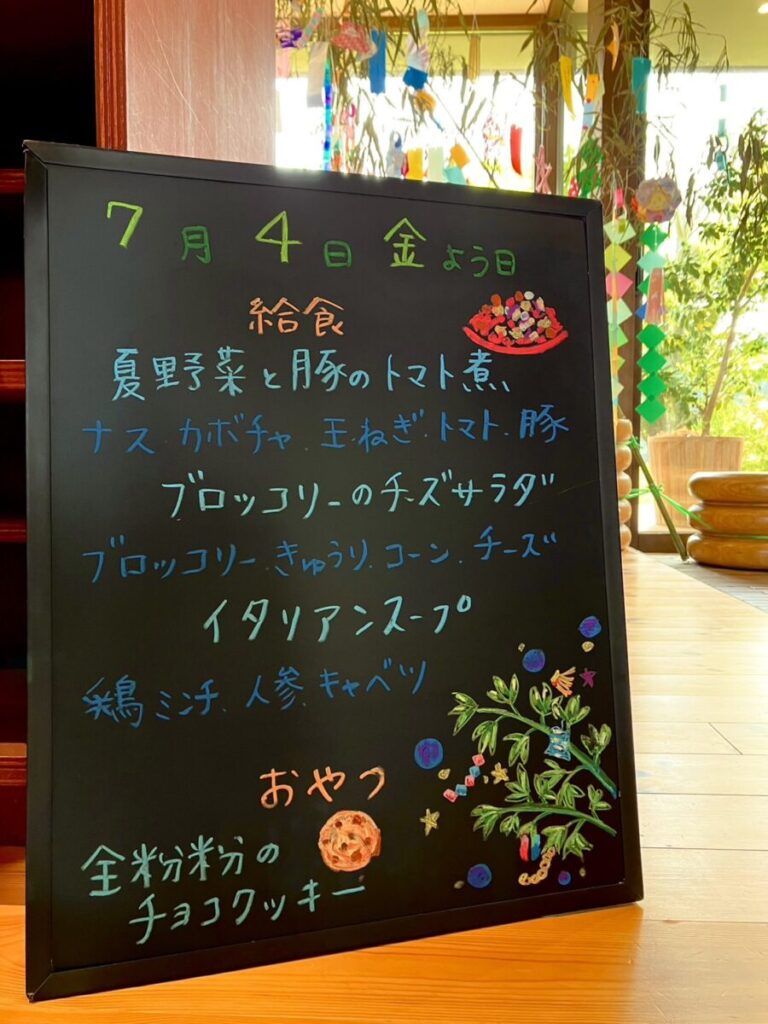 7月4日金よう日
給食
夏野菜と豚のトマト煮
ナス.カボチャ.玉ねぎ.トマト.豚
ブロッコリーのチーズサラダ
ブロッコリー.きゅうり.コーン.チーズ
イタリアンスープ
鶏ミンチ.人参.キャベツ
おやつ
全粒粉の
チョコクッキー